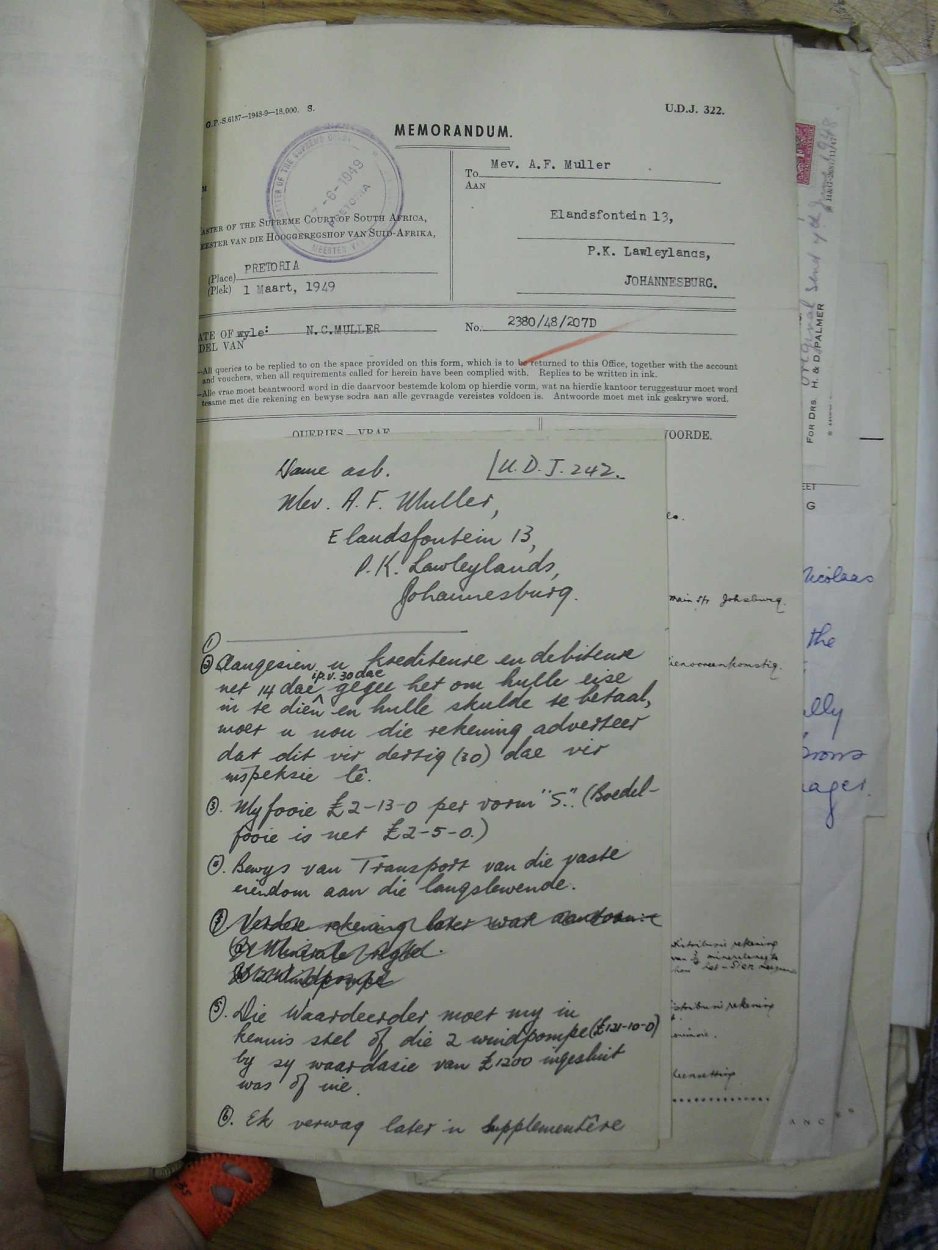 G.P.-S.6187—1948-9—18,000. S.
U.D.J. 322.
MEMORANDUM.
To
AAN
Mev. A.F. Muller
Elandsfontein 13,
P.K. Lawleylands,
JOHANNESBURG.
ASTER OF THE SUPREME COURT OF SOUTH AFRICA,
EESTER VAN DIE HOOGGEREGSHOF VAN SUID-AFRIKA,
(Place) PRETORIA
(Plek) 1 Maart, 1949
ATE OF wyle: N.C.MULLER
DEL VAN
No. 2380/48/207D
—All queries to be replied to on the space provided on this form, which is to be returned to this Office, together with the account
and vouchers, when all requirements called for herein have been complied with. Replies to be written in ink.
—Alle vrae moet beantwoord word in die daarvoor bestemde kolom op hierdie vorm, wat na hierdie kantoor teruggestuur moet word
tesame met die rekening en bewyse sodra aan alle gevraagde vereistes voldoen is. Antwoorde moet met ink geskrywe word.
QUERIES—VRAE
WOORDE.
Dame asb.
U.D.J. 242.
Mev. A. F. Muller,
Elandsfontein 13,
P.K. Lawleylands,
Johannesburg.
①
② Aangesien u krediteure en debiteure
net 14 dae i.p.v. 30 dae gegee het om hulle eise
in te diên en hulle skulde te betaal,
moet u nou die rekening adverteer
dat dit vir dertig (30) dae vir
inspeksie lê.
③. My fooie £2-13-0 per vorm "S". (Boedel-
fooie is net £2-5-0.)
④. Bewys van Transport van die vaste
eiendom aan die langslewende.
⑤. Die Waardeerder moet my in
kennis stel of die 2 windpompe (£121-10-0)
by sy waardasie van £1200 ingesluit
was of nie.
⑥. Ek verwag later 'n supplementêre
main Str Johsburg.
distribusie rekening
FOR DRS. H. & D. PALMER
EET
G
Nicolaas
the
ally
ager.